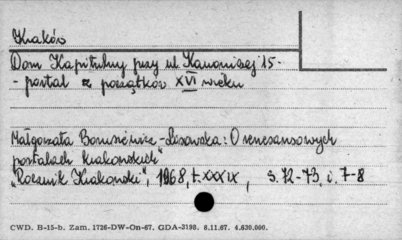 Kraków
Dom Kapitulny przy ul Kanoniczej 15 -
- portal z początków XVI wieku
Małgorzata Borusiewicz-Lisowska: O renesansowych
portalach krakowskich"
"Rocznik Krakowski", 1968, t. XXXIX, s. 72-73, i. 7-8
CWD. B-15-b. Zam. 1726-DW-On-67. GDA-3198. 8.11.67. 4.630.000.